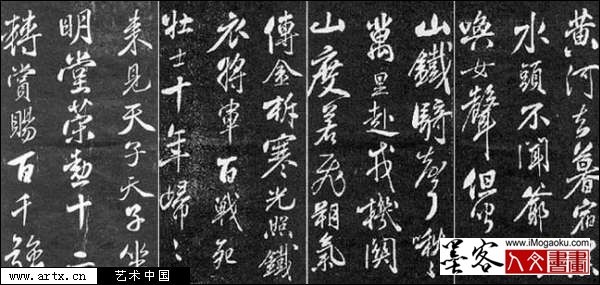 黃河去暮宿
水頭不聞爺
喚女聲但聞
山鐵騎聲啾々
萬里赴戎機關
山度若飛朔氣
傳金柝寒光照鐵
衣將軍百戰死
壯士十年歸々
來見天子天子坐
明堂策勳十二
轉賞賜百千強
www.artx.cn 艺术中国
墨客
www.iMogaoku.com
人文書畫